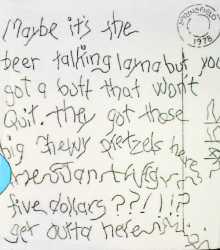 Maybe it's the
beer talking layna but you
got a butt that won't
Quit. they got those
big chewy pretzels here
five dollars??!!!?
get outta here
1976